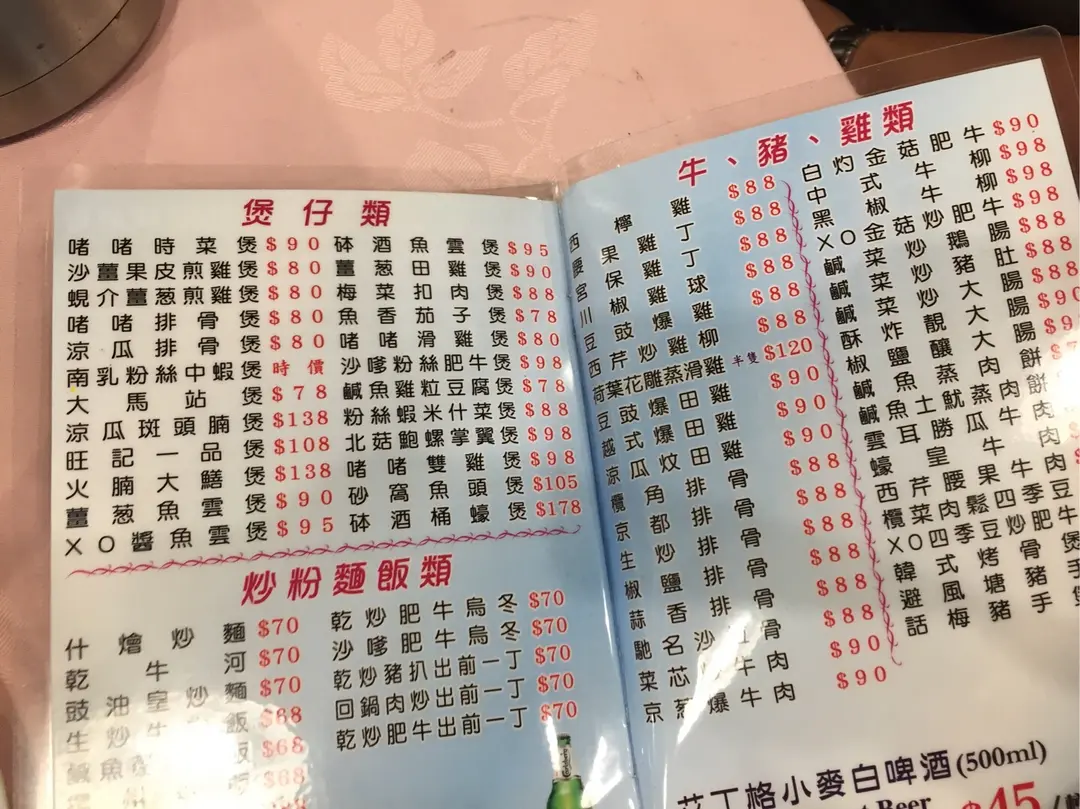 煲仔類
啫啫時菜煲 $90
沙薑果皮煎雞煲 $80
蜆介薑葱煎雞煲 $80
啫啫排骨煲 $80
涼瓜排骨煲 $80
南乳粉絲中蝦煲 時價
大馬站煲 $78
涼瓜斑頭腩煲 $138
旺記一品煲 $108
火腩大鱔煲 $138
薑葱魚雲煲 $90
XO醬魚雲煲 $95
砵酒魚雲煲 $95
薑葱田雞煲 $90
梅菜扣肉煲 $88
魚香茄子煲 $78
啫啫滑雞煲 $80
沙嗲粉絲肥牛煲 $98
鹹魚雞粒豆腐煲 $78
粉絲蝦米什菜煲 $88
北菇鮑螺掌翼煲 $98
啫啫雙雞煲 $98
砂窩魚頭煲 $105
砵酒桶蠔煲 $178
炒粉麵飯類
什燴炒麵 $70
乾牛河 $70
豉油皇炒麵 $70
生炒牛飯 $68
$68
$68
乾炒肥牛烏冬 $70
沙嗲肥牛烏冬 $70
乾炒豬扒出前一丁 $70
回鍋肉炒出前一丁 $70
乾炒肥牛出前一丁 $70
牛、豬、雞類
西檸雞 $88
腰果雞丁 $88
宮保雞丁 $88
川椒雞球 $88
豆豉爆雞 $88
西芹炒雞柳 $88
荷葉花雕蒸滑雞 半隻 $120
豆豉爆田雞 $90
越式爆田雞 $90
涼瓜炆田雞 $90
欖角排骨 $88
京都排骨 $88
生炒排骨 $88
椒鹽排骨 $88
蒜香排骨 $88
馳名沙骨
菜芯牛肉 $90
京葱爆牛肉 $90
白灼金菇肥牛 $90
中式牛柳 $98
黑椒牛柳 $98
XO金菇炒肥牛 $98
鹹菜炒鵝腸 $88
鹹菜炒豬肚 $88
鹹菜炒大腸 $88
酥炸靚大腸
椒鹽釀大腸
鹹魚蒸肉餅
鹹魚土魷蒸肉餅
雲耳勝瓜牛肉
蠔皇牛肉
西芹腰果牛
欖菜肉鬆四季豆
XO四季豆炒肉
韓式烤肥牛
避風塘骨
話梅豬手
花丁格小麥白啤酒(500ml)
Beer $45